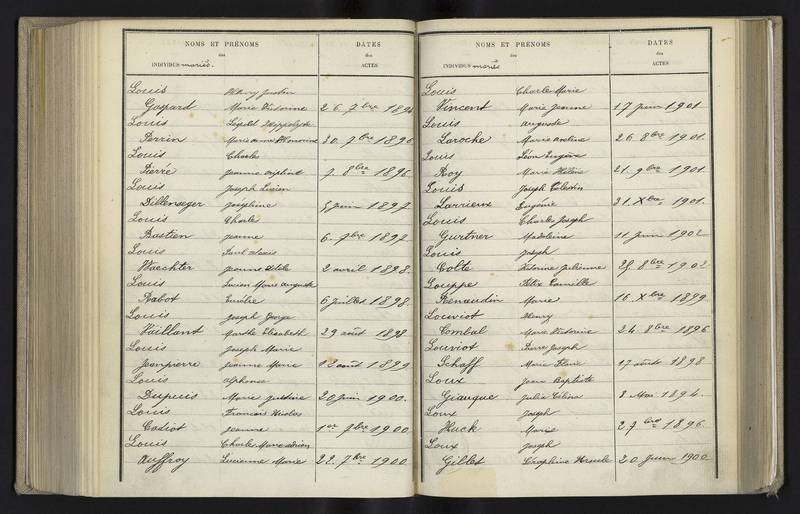 NOMS ET PRÉNOMS
des
INDIVIDUS mariés.
DATES
des
ACTES
Louis Henry Justin
Gassard Marie Victorine 26. 7bre 1896
Louis Léopold Hippolyte
Perrin Marie Honorine 30. 7bre 1896
Louis Charles
Pierre Jeanne Delphine 7. 8bre 1896
Louis Joseph Lucien
Dillenseger Joséphine 5 juin 1897
Louis Charles
Bastien Jeanne 6. 7bre 1897
Louis Paul Alexis
Waechter Jeanne Adèle 2 avril 1898.
Louis Lucien Marie Auguste
Rabot Emélie 6 juillet 1898.
Louis Joseph George
Vaillant Marthe Elisabeth 29 août 1898
Louis Joseph Marie
Jeanpierre Jeanne Marie 12 août 1899
Louis Alphonse
Dupuis Marie Justine 20 juin 1900.
Louis Francois Nicolas
Codiot Jeanne 1er 7bre 1900
Louis Charles Marie Adrien
Auffroy Lucienne Marie 22. 7bre 1900
NOMS ET PRÉNOMS
des
INDIVIDUS mariés
DATES
des
ACTES
Louis Charles Marie
Vincent Marie Jeanne 17 juin 1901
Louis Auguste
Laroche Marie 26. 8bre 1901.
Louis Léon Eugène
Roy Marie Hélène 21. 9bre 1901.
Louis Joseph Célestin
Larrieux Eugénie 31. Xbre 1901.
Louis Charles Joseph
Gurtner Madeleine 11 juin 1902
Louis Joseph
Colte Victorine Julienne 8bre 1902
Louppe Félix Camille
Renaudin Marie 16. Xbre 1899.
Louviot Henry
Combal Marie Victorine 24. 8bre 1896
Louviot Pierre Joseph
Schaff Marie 17 août 1898
Loux Jean Baptiste
Giauque Julie Célina 8 Mai 1894.
Loux Joseph
Huck Marie 27 1896.
Loux Joseph
Gillet Séraphine Ursule 20 juin 1900